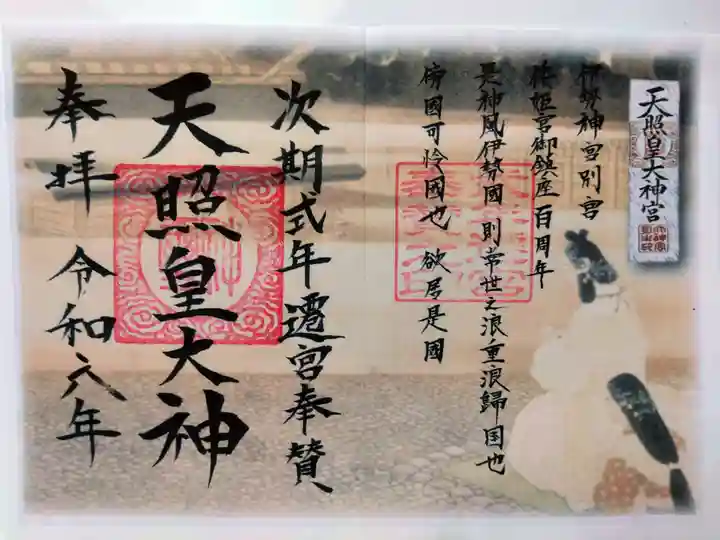 天照皇大神宮
伊勢神宮別宮
倭姫宮御鎮座百周年
是神風伊勢國 則常世之浪重浪歸国也
傍國可怜國也 欲居是國
次期式年遷宮奉賛
天照皇大神
奉拝 令和六年